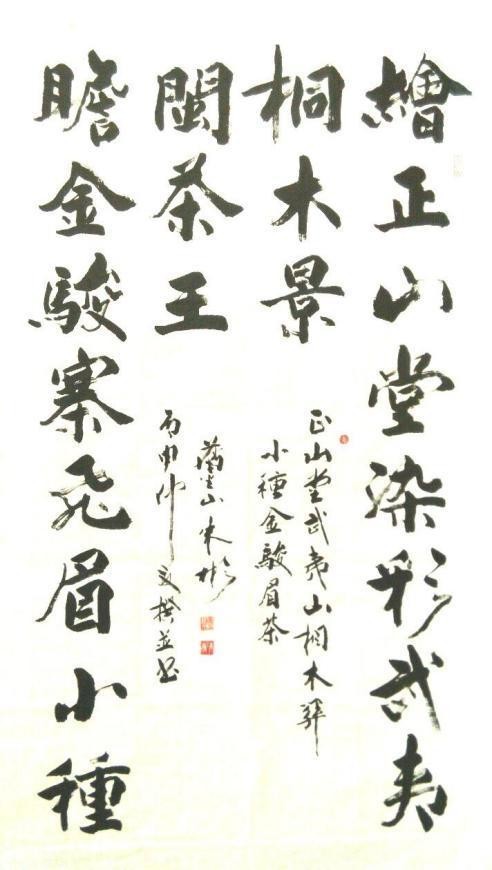 繪正山堂染彩武夷
桐木景
正山堂武夷山桐木
小種金駿眉茶
瞻金駿寨飛眉小種
閩茶王
丙申 文撰並書
山朱彬